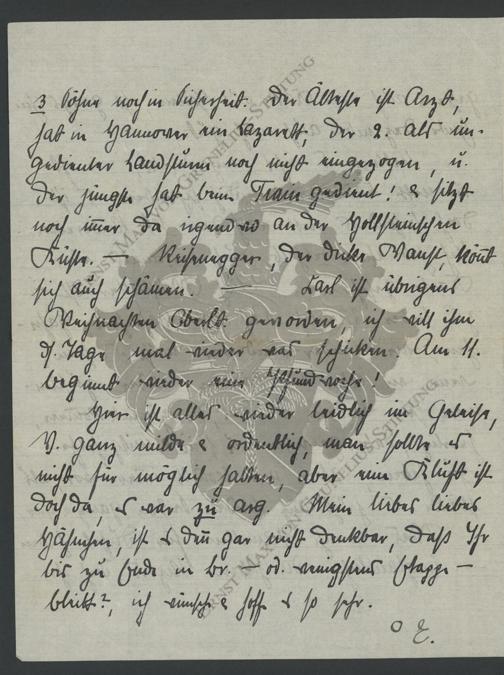 3 Söhne noch in Sicherheit. Der Älteste ist Arzt,
hat in Hannover ein Lazarett, der 2. als un-
gedienter Landsturm noch nicht eingezogen, u.
der jüngste hat beim Train gedient! & sitzt
noch immer da irgendwo an der Hollsteinschen
Küste. — Riesenegger, der dicke Wanst, könnt
sich auch schämen. — Karl ist übrigens
Weihnachten Oberlt. geworden, ich will ihm
d. Tage mal wieder was schicken. Am 11.
beginnt wieder eine woche!
Hier ist alles wieder leidlich im Geleise,
V. ganz milde & ordentlich, man sollte es
nicht für möglich halten, aber eine Kluft ist
doch da, es war zu arg. Mein liebes liebes
Hähnchen, ist es denn gar nicht denkbar, daß Ihr
bis zu Ende in Br. — od. wenigstens Etappe —
bleibt?, ich wünsche & hoffe es so sehr.
ERNST MAX VON GRUNELIUS-STIFTUNG
ERNST MAX VON GRUNELIUS-STIFTUNG